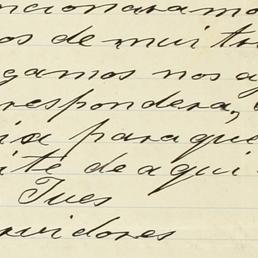 ncionaramo
os de mui tr
gamos nos a
respondera,
ia para que
ite de aqui
Tues
rvidores